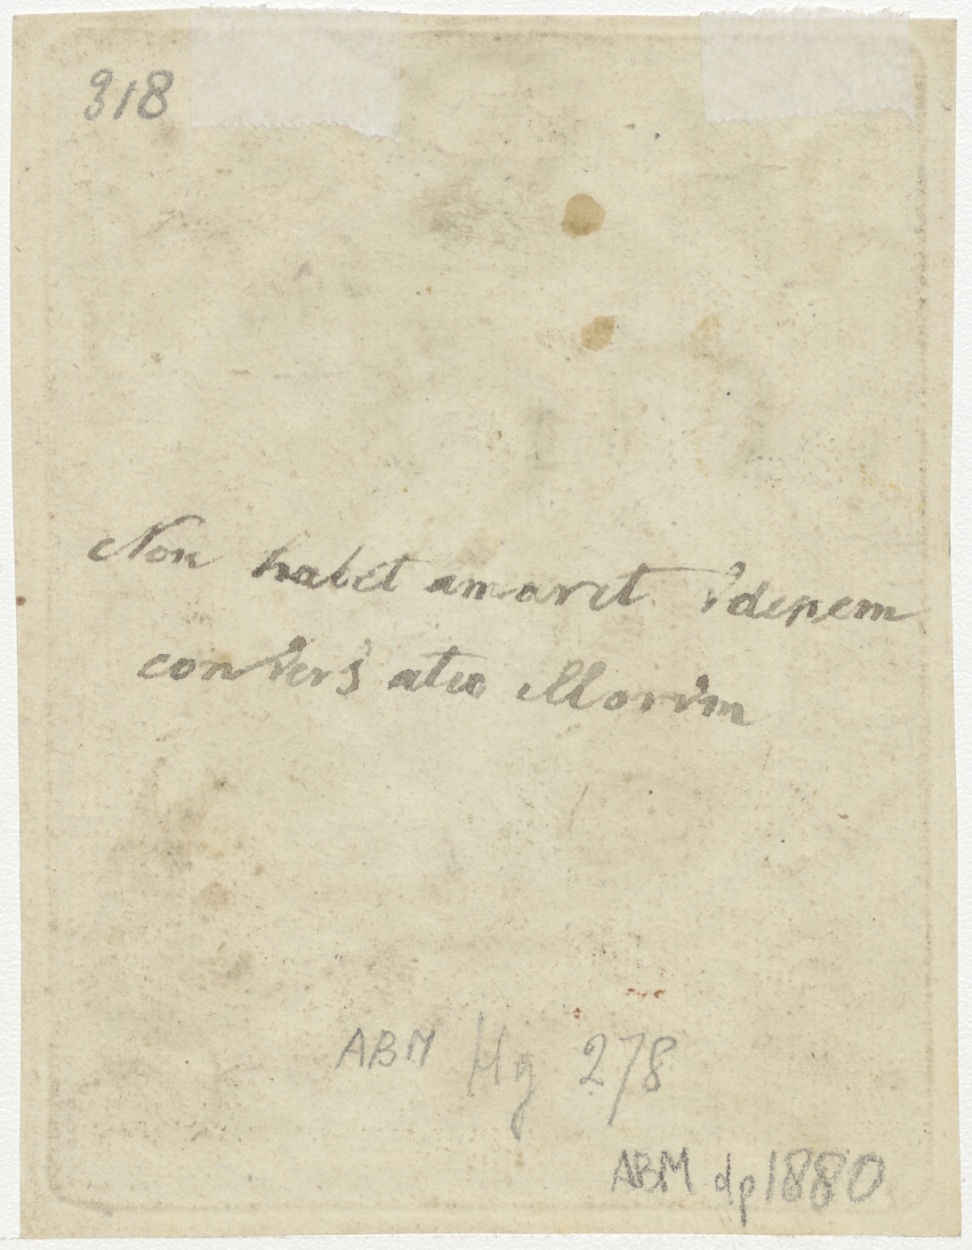 318
Non habet amarit vdenem
convers atio illorum
ABM Hg 278
ABM dp1880